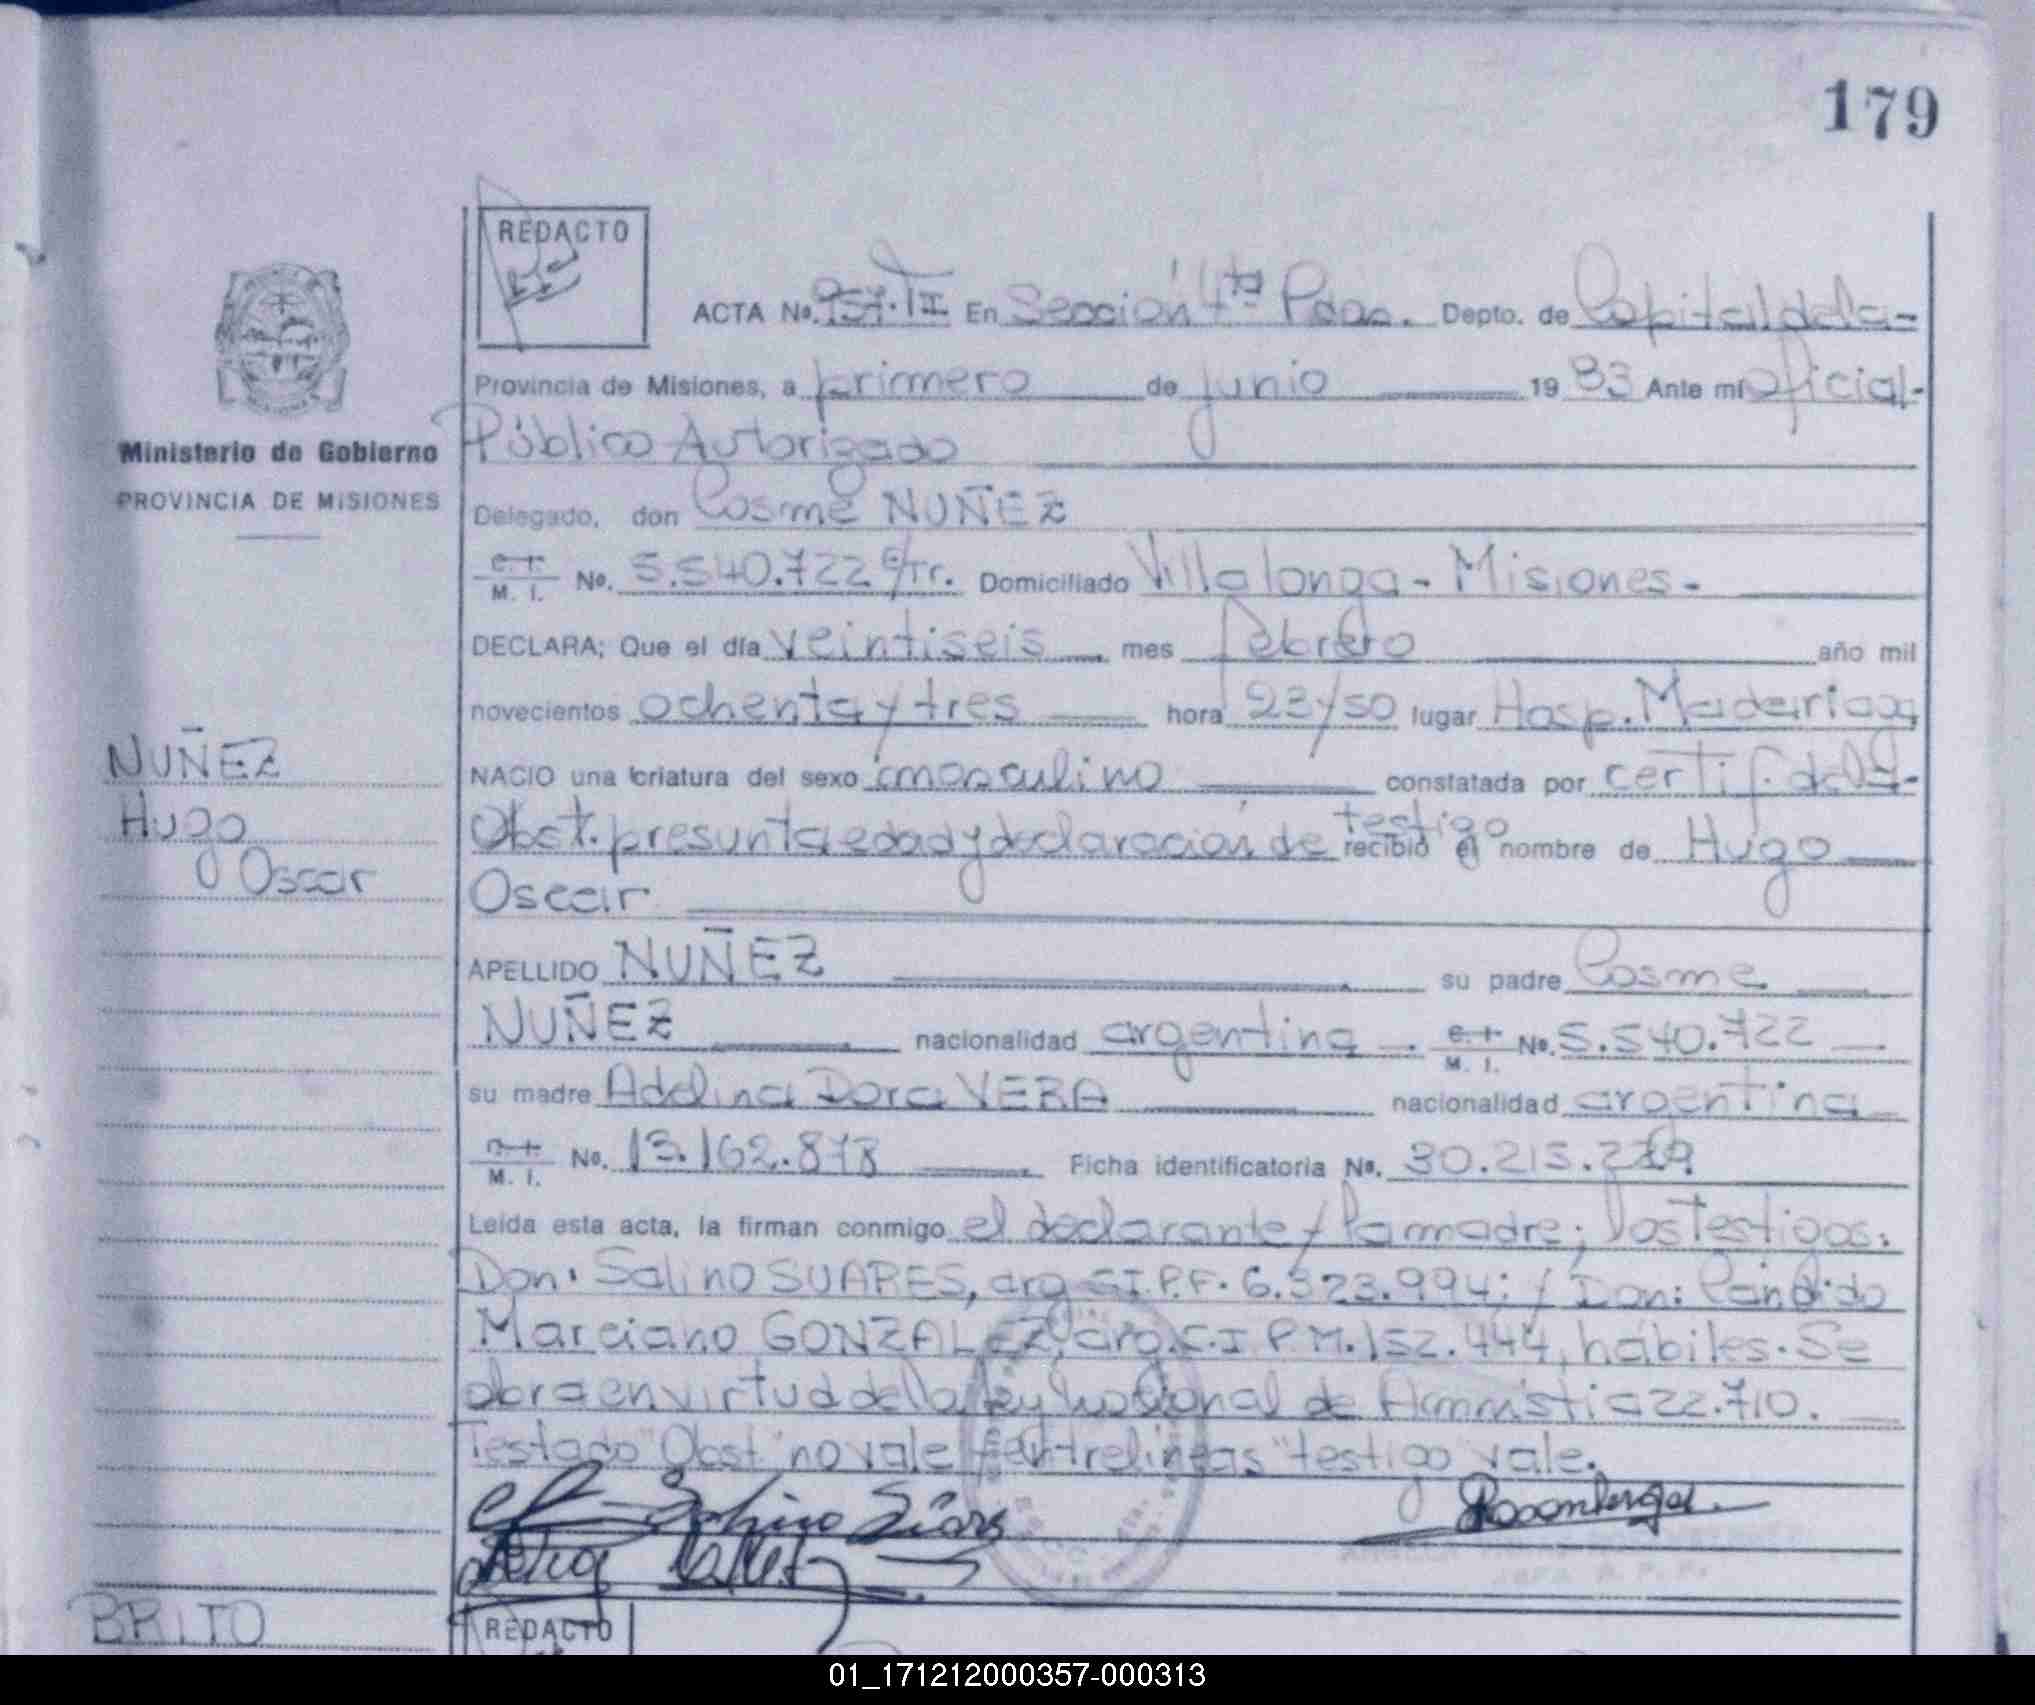 179
REDACTO
ACTA No. 957.TII En Sección 4ta Pdas. Depto. de Capital de la-
Provincia de Misiones, a primero de junio 1983 Ante mí Oficial-
Público Autorizado
Ministerio de Gobierno
PROVINCIA DE MISIONES
Delegado, don Cosme NUÑEZ
M. I. No. 5.540.722 C/Tr. Domiciliado Villalonga - Misiones -
DECLARA; Que el día veintiseis mes febrero año mil
novecientos ochenta y tres hora 23/50 lugar Hosp. Madariaga
NUÑEZ
Hugo
Oscar
NACIO una criatura del sexo masculino constatada por certif. de la-
Obst. presunta edad y declaración de testigo recibió el nombre de Hugo
Oscar
APELLIDO NUÑEZ su padre Cosme
NUÑEZ nacionalidad argentina M. I. No. 5.540.722
su madre Adelina Dora VERA nacionalidad argentina
M. I. No. 13.162.878 Ficha identificatoria No. 30.213.
Leída esta acta, la firman conmigo el declarante y la madre; los testigos:
Don: Salino SUARES, arg. C.I.P.F. 6.323.994; y Don: Cándido
Marciano GONZALEZ, arg. C.I P.M. 152.444, hábiles. Se
obra en virtud de la ley Nacional de Amnistia 22.710.
Testado "Obst" no vale entrelineas "testigo" vale.
BRITO
REDACTO
01_171212000357-000313